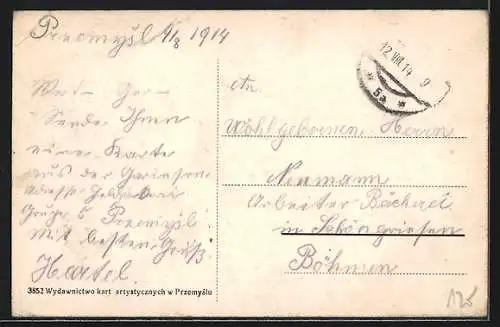 Przemyśl 9/8 1914
Wert-
Sende Ihnen
eine Karte
aus der Garnison.
Adresse Feldp
Gruppe 5 Przemyśl.
Mit besten Gruß
Hartel.
3852 Wydawnictwo kart artystycznych w Przemyślu
12 VIII 14 9
* 5a *
An
Wohlgeborenen Herrn
Neumann
Arbeiter Bäckerei
in Schöngriesen
Böhmen
125